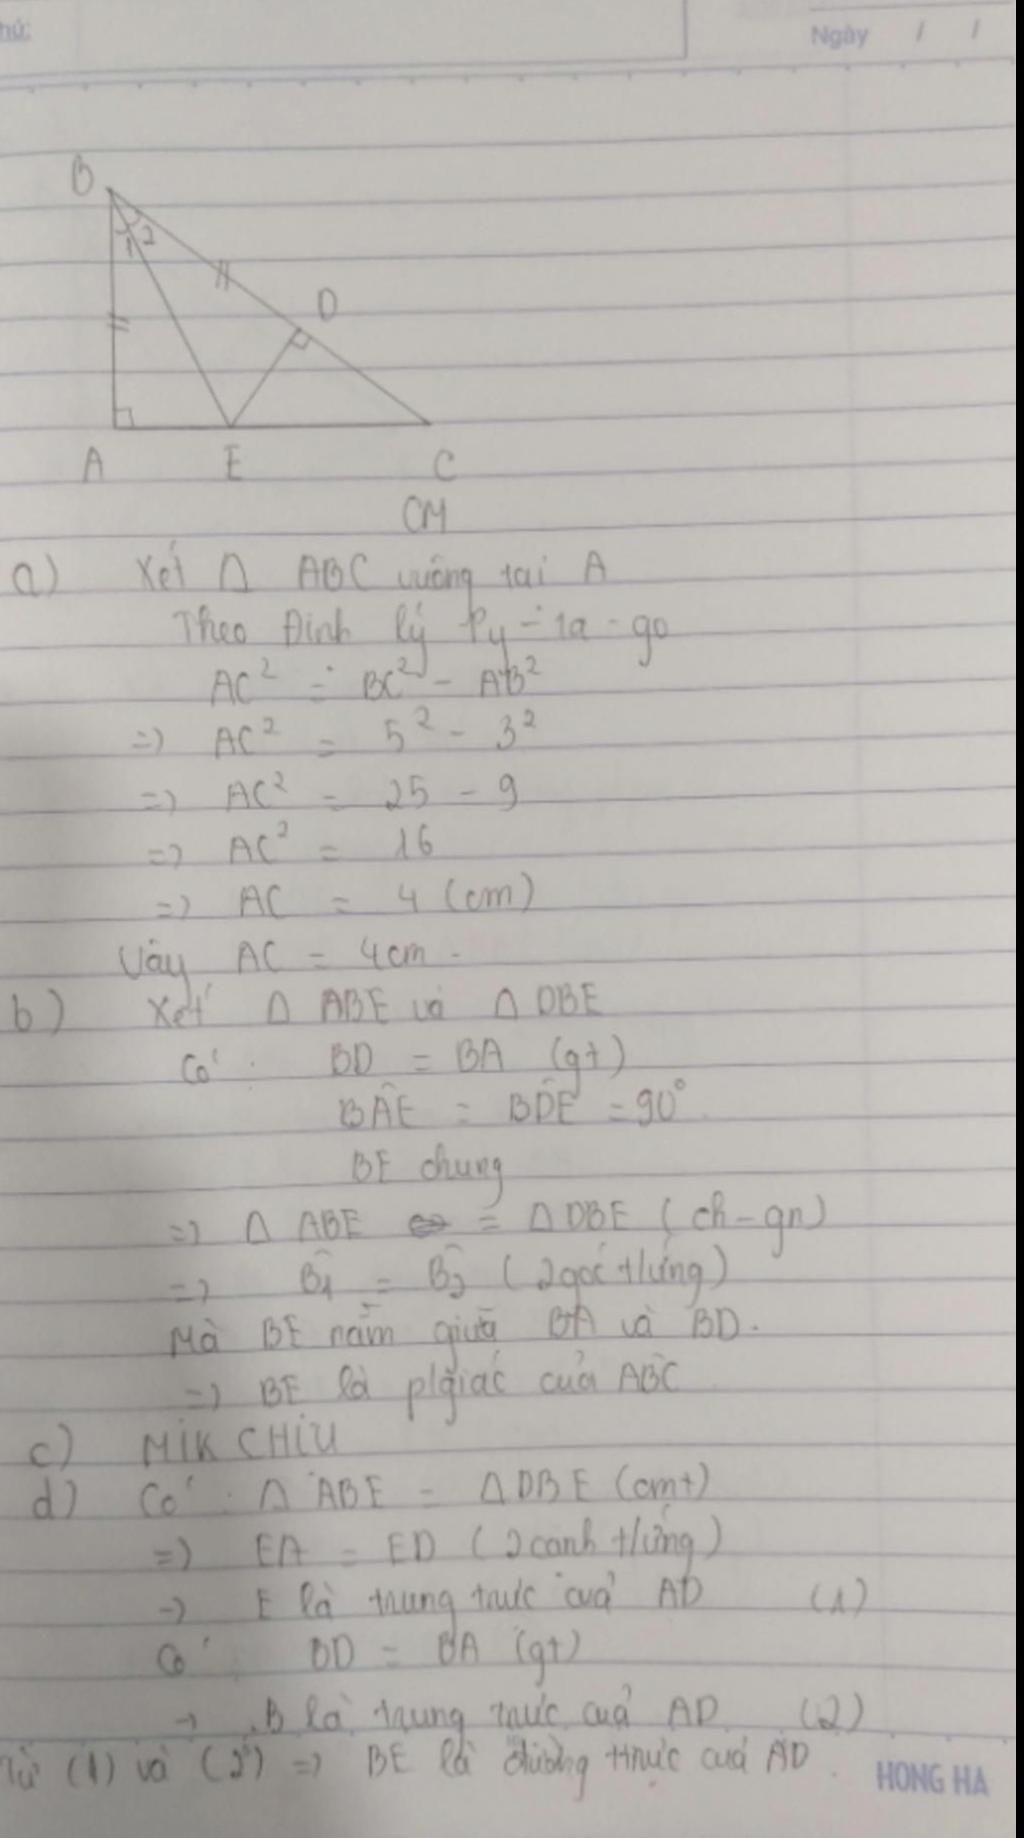 hứ:
Ngày / /
B
1 2
D
A E C
CM
a) Xét Δ ABC vuông tại A
Theo Định lý Py-ta-go
AC² = BC² - AB²
=> AC² = 5² - 3²
=> AC² = 25 - 9
=> AC² = 16
=> AC = 4 (cm)
Vậy AC = 4cm.
b) Xét Δ ABE và Δ DBE
Có: BD = BA (gt)
BÂE = BD̂E = 90°
BE chung
=> Δ ABE = Δ DBE (ch-gn)
=> B̂1 = B̂2 (2 góc t/ứng)
Mà BE nằm giữa BA và BD.
=> BE là p/giác của AB̂C
c) MIK CHỊU
d) Có: Δ ABE = Δ DBE (cmt)
=> EA = ED (2 cạnh t/ứng)
-> E là trung trực của AD (1)
Có: BD = BA (gt)
-> B là trung trực của AD (2)
Từ (1) và (2) => BE là đường ttrực của AD.
HONG HA